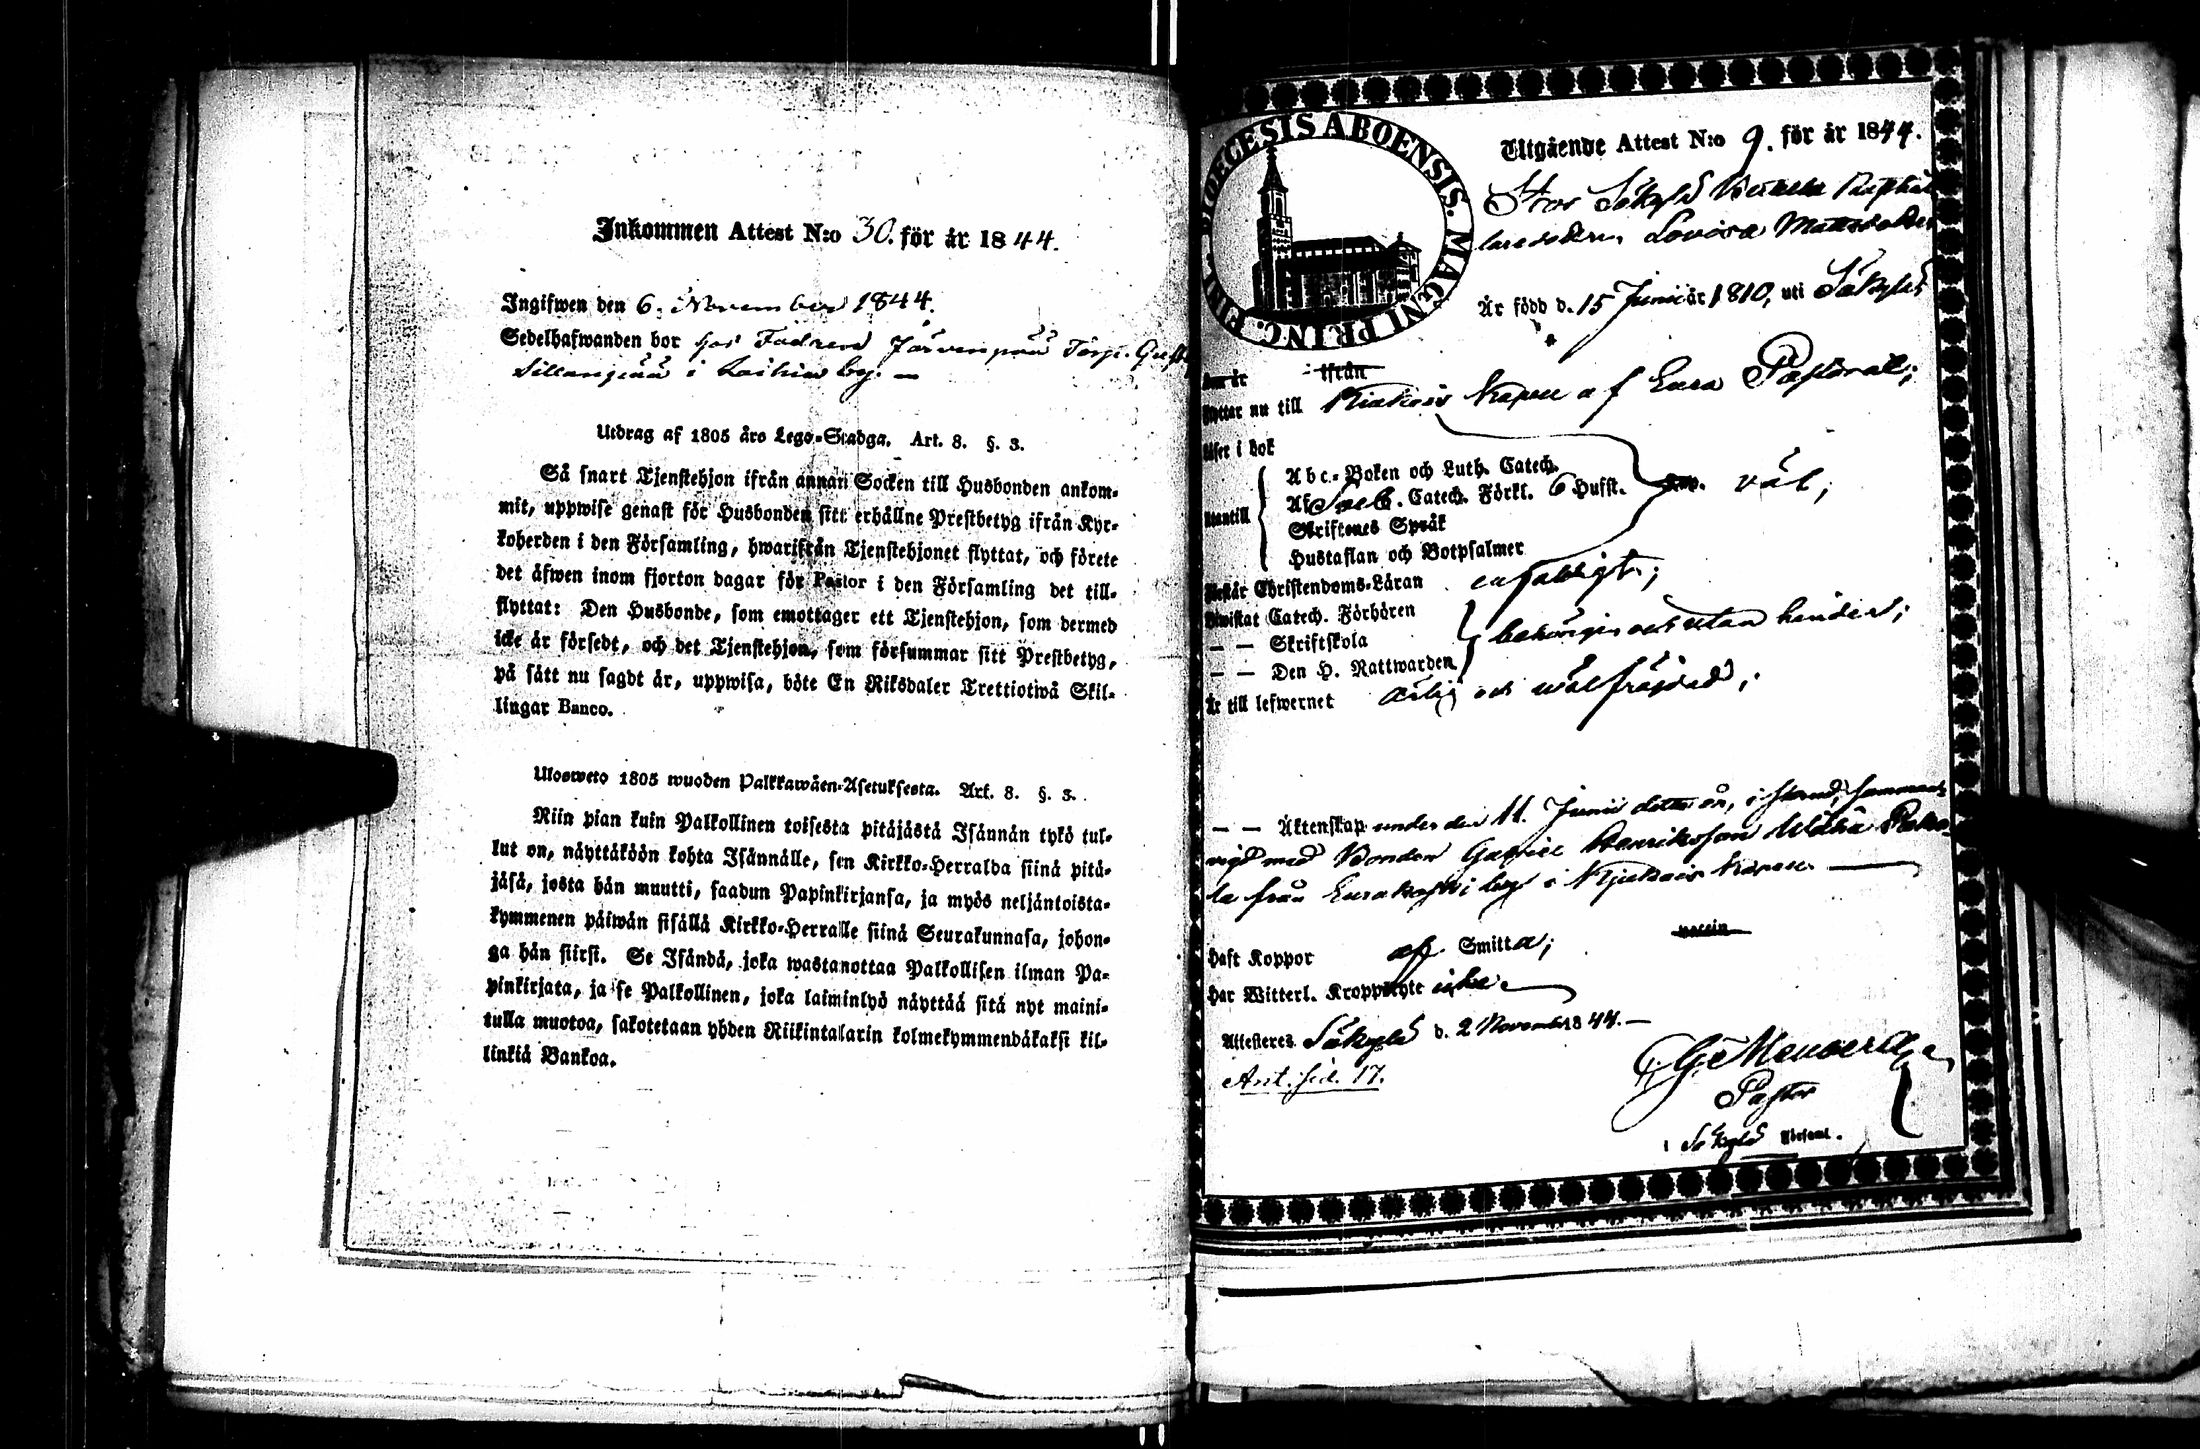 Inkommen Attest N:o 30. för år 1844.
Ingifwen den 6. November 1844.
Sedelhafwanden bor hos Fadren Järvenpää Torp.
i by. —
Utdrag af 1805 års Lego-Stadga. Art. 8. §. 3.
Så snart Tjenstehjon ifrån annan Socken till Husbonden ankom-
mit, uppwise genast för Husbonden sitt erhållne Prestbetyg ifrån Kyr-
koherden i den Församling, hwarifrån Tjenstehjonet flyttat, och förete
det äfwen inom fjorton dagar för Pastor i den Församling det till-
flyttat: Den Husbonde, som emottager ett Tjenstehjon, som dermed
icke är försedt, och det Tjenstehjon, som försummar sitt Prestbetyg,
på sätt nu sagdt är, uppwisa, böte En Riksdaler Trettiotwå Skil-
lingar Banco.
Ulosweto 1805 wuoden Palkkawäen-Asetuksesta. Art. 8. §. 3.
Niin pian kuin Palkollinen toisesta pitäjästä Isännän tykö tul-
lut on, näyttäköön kohta Isännälle, sen Kirkko-Herralda siinä pitä-
jäsä, josta hän muutti, saadun Papinkirjansa, ja myös neljäntoista-
kymmenen päiwän sisällä Kirkko-Herralle siinä Seurakunnasa, johon-
ga hän siirsi. Se Isändä, joka wastanottaa Palkollisen ilman Pa-
pinkirjata, ja se Palkollinen, joka laiminlyö näyttää sitä nyt maini-
tulla muotoa, sakotetaan yhden Riikintalarin kolmekymmendäkaksi kil-
linkiä Bankoa.
DIOECESIS ABOENSIS. MAGNI PRINC. FINL.
Utgående Attest N:o 9. för år 1844.
Stor Säkylä
Lovisa Mattsdotter
Är född d. 15 Junii år 1810, uti Säkylä
ifrån
flyttar nu till Kiukais Kapell af Eura Pastorat;
läser i bok
Abc-Boken och Luth. Catech.
utantill Af Sveb. Catech. Förkl. 6 Hufst. väl;
Skriftenes Språk
Hustaflan och Botpsalmer
Förstår Christendoms-Läran enfaldigt;
Bewistat Catech. Förhören
— — Skriftskola behörigen och utan hinder;
— — Den H. Nattwarden
Är till lefwernet ärlig och wälfräjdad;
— — Äktenskap under den 11. Junii detta år, i stånd, samman-
vigd med Bonden Gabriel Henriksson
la från Eurakoski by i Kjukais Kapell. —
Haft Koppor af Smitta; vaccin
Har Witterl. Kroppslyte icke
Attesteras Säkylä d. 2 November 1844. —
Ant. sid. 17.
Pastor
i Säkylä Församl.